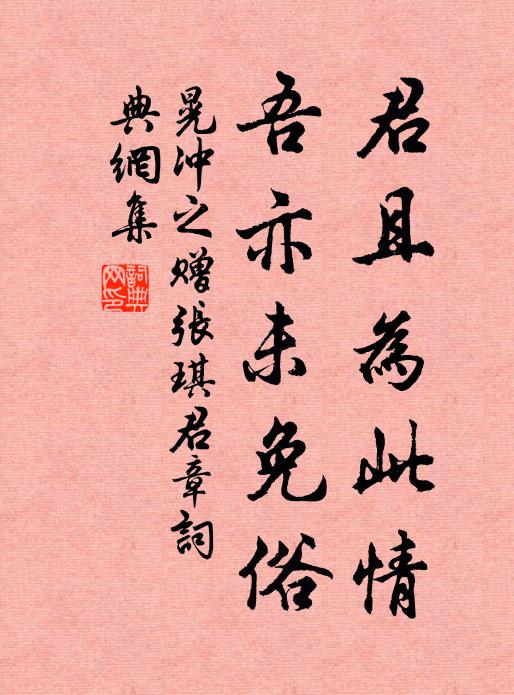 君且為此情
吾亦未免俗
晁冲之贈張琪君章詞
典網集
詞典網印